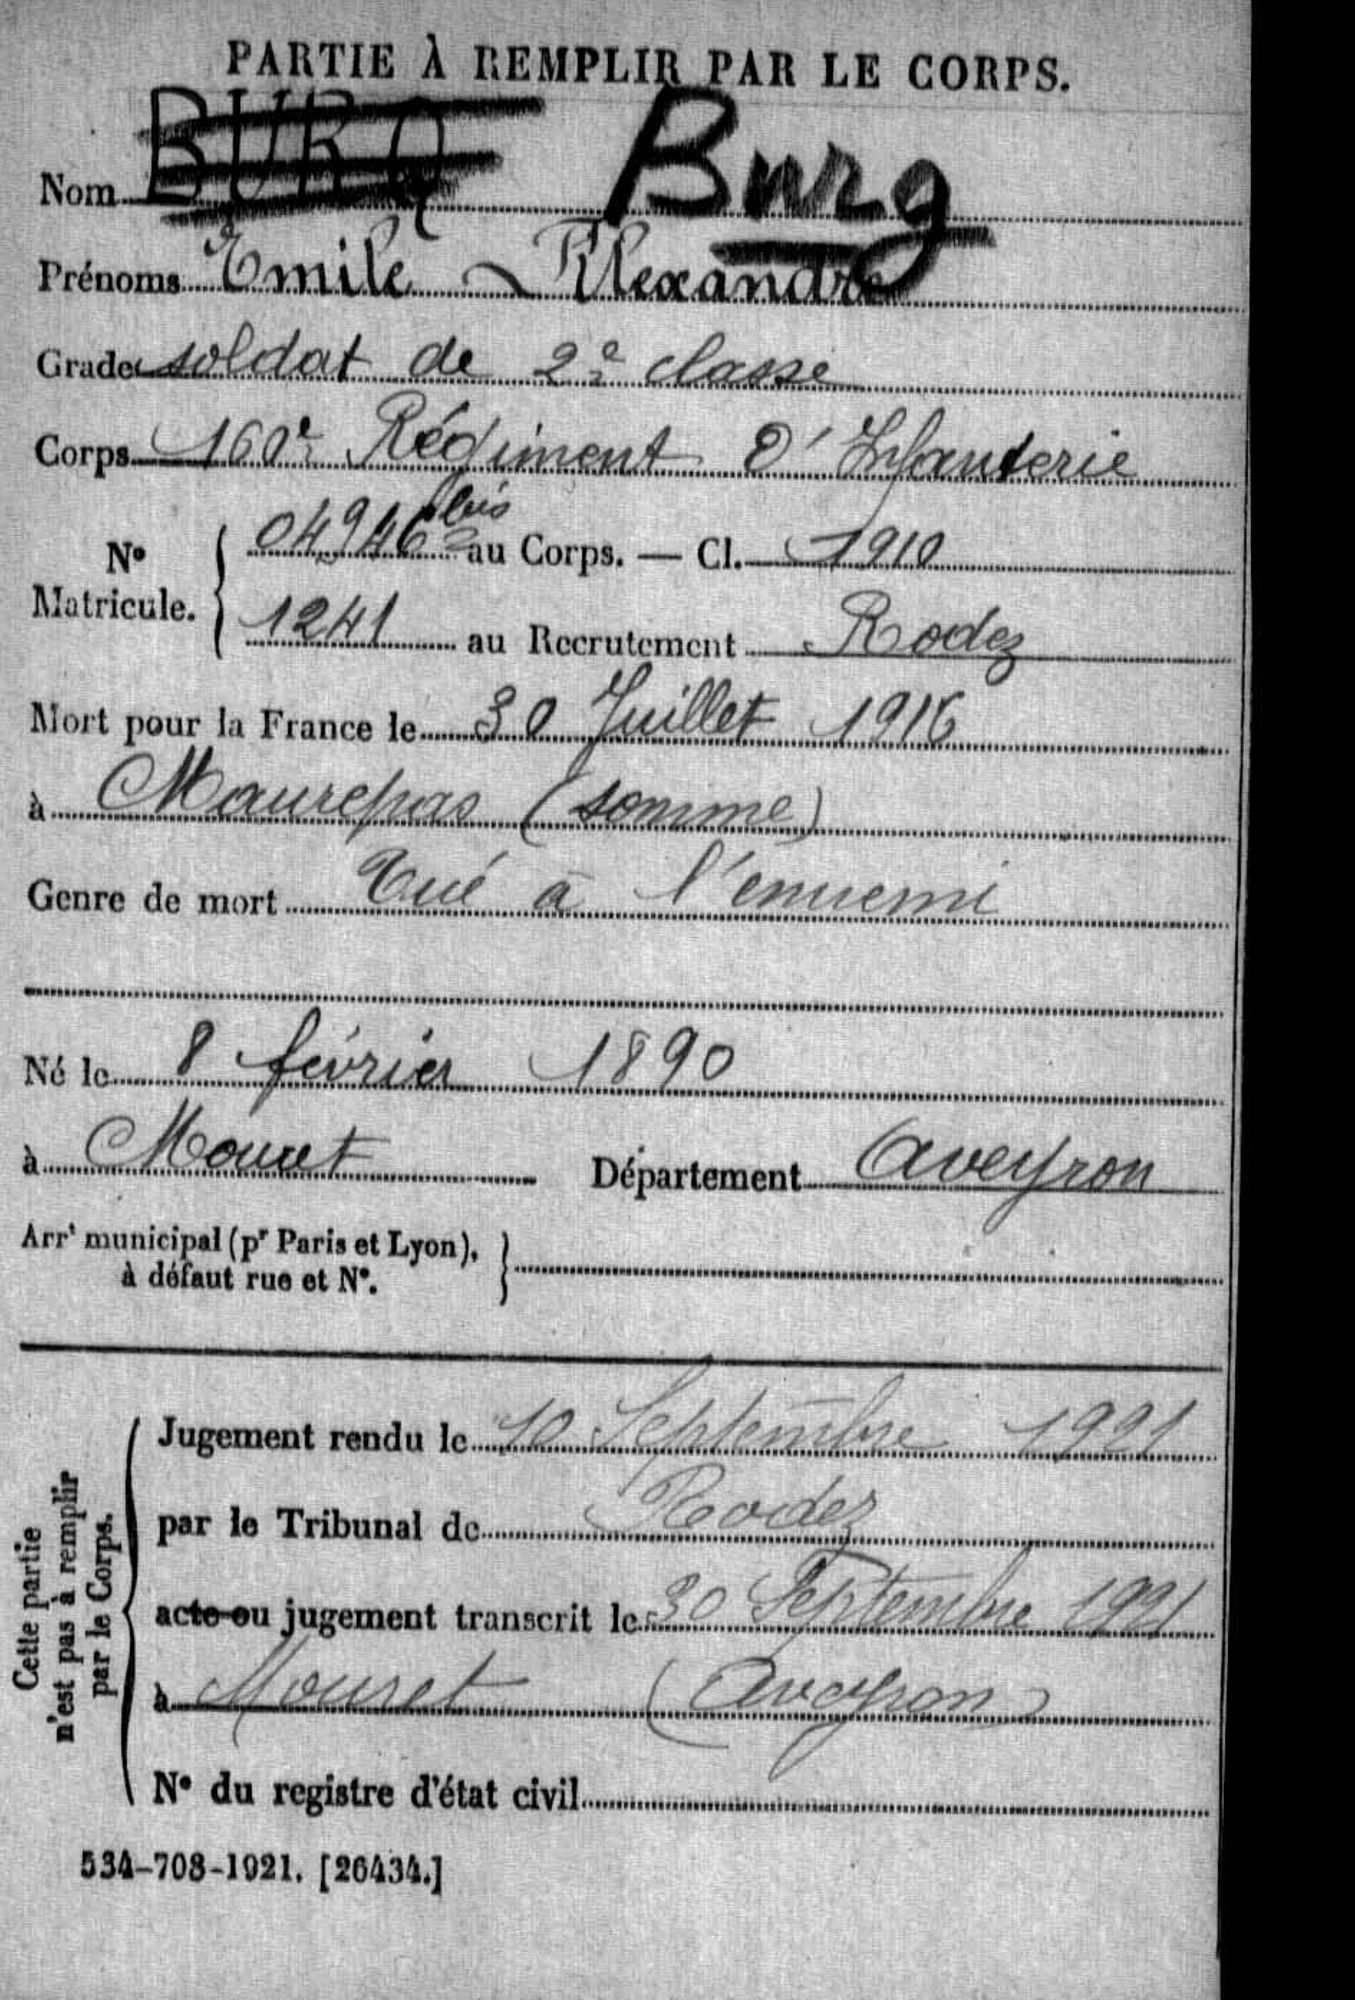 PARTIE À REMPLIR PAR LE CORPS.
Nom BURQ Burg
Prénoms Emile Alexandre
Grade soldat de 2e classe
Corps 160e Régiment D'Infanterie
No Matricule. { 04946 bis au Corps. — Cl. 1910
1241 au Recrutement Rodez
Mort pour la France le 30 Juillet 1916
à Maurepas (Somme)
Genre de mort Tué à l'ennemi
Né le 8 février 1890
à Mouret Département Aveyron
Arrt municipal (pr Paris et Lyon),
à défaut rue et No.
Cette partie
n'est pas à remplir
par le Corps.
Jugement rendu le 10 Septembre 1921
par le Tribunal de Rodez
acte ou jugement transcrit le 30 Septembre 1921
à Mouret (Aveyron)
No du registre d'état civil
534-708-1921. [26434.]